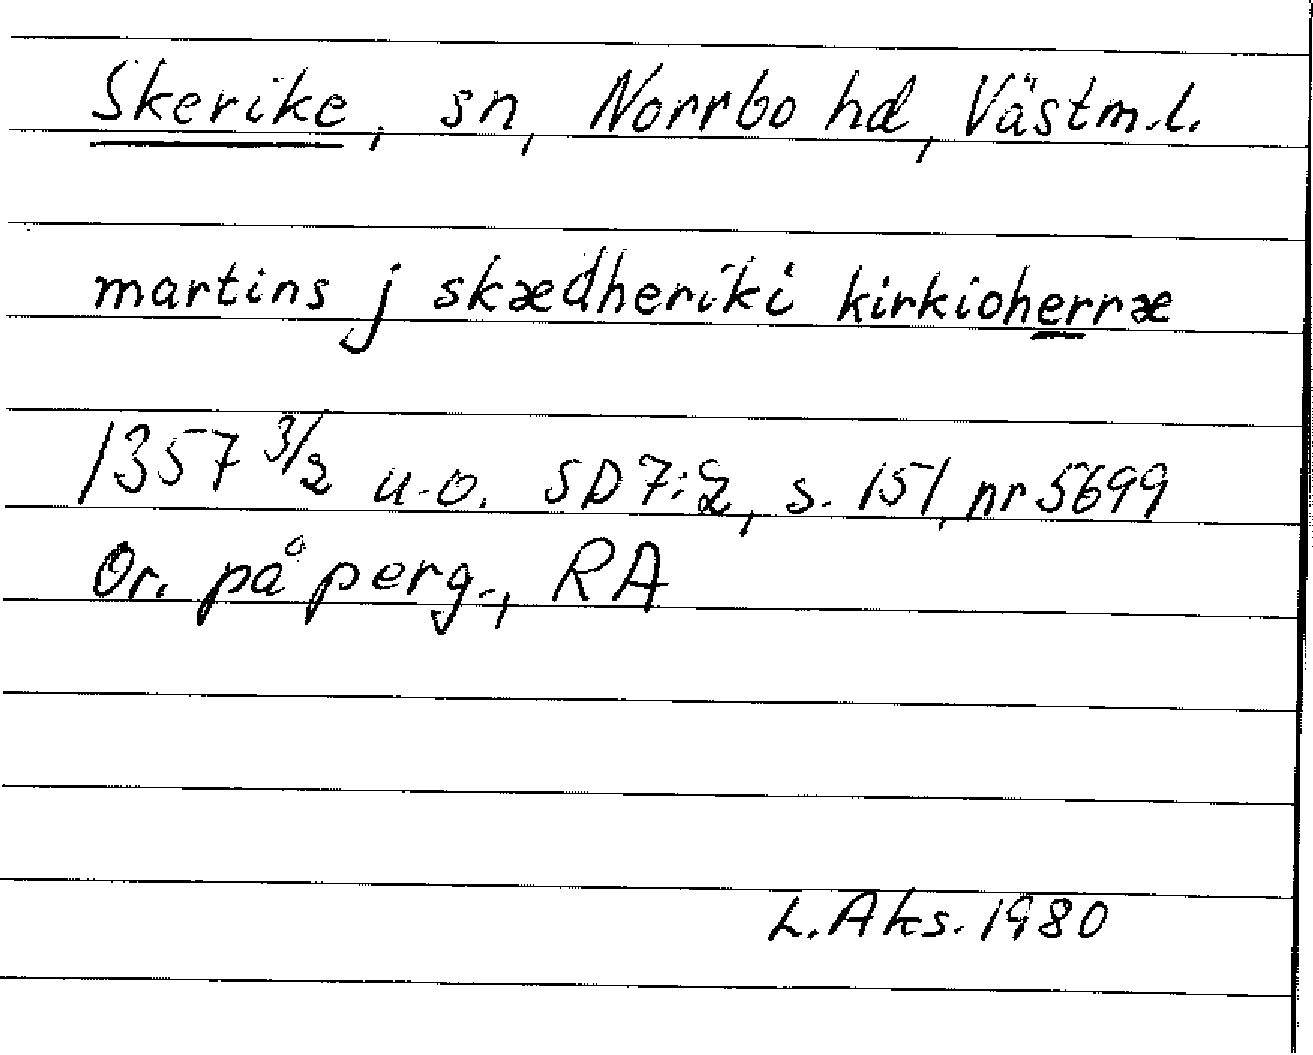 Skerike, sn, Norrbo hd, Västm.l.
martins j skædheriki kirkioherræ
1357 3/2 u.o. SD 7:2, s. 151, nr 5699
Or. på perg., RA
L. Aks. 1980